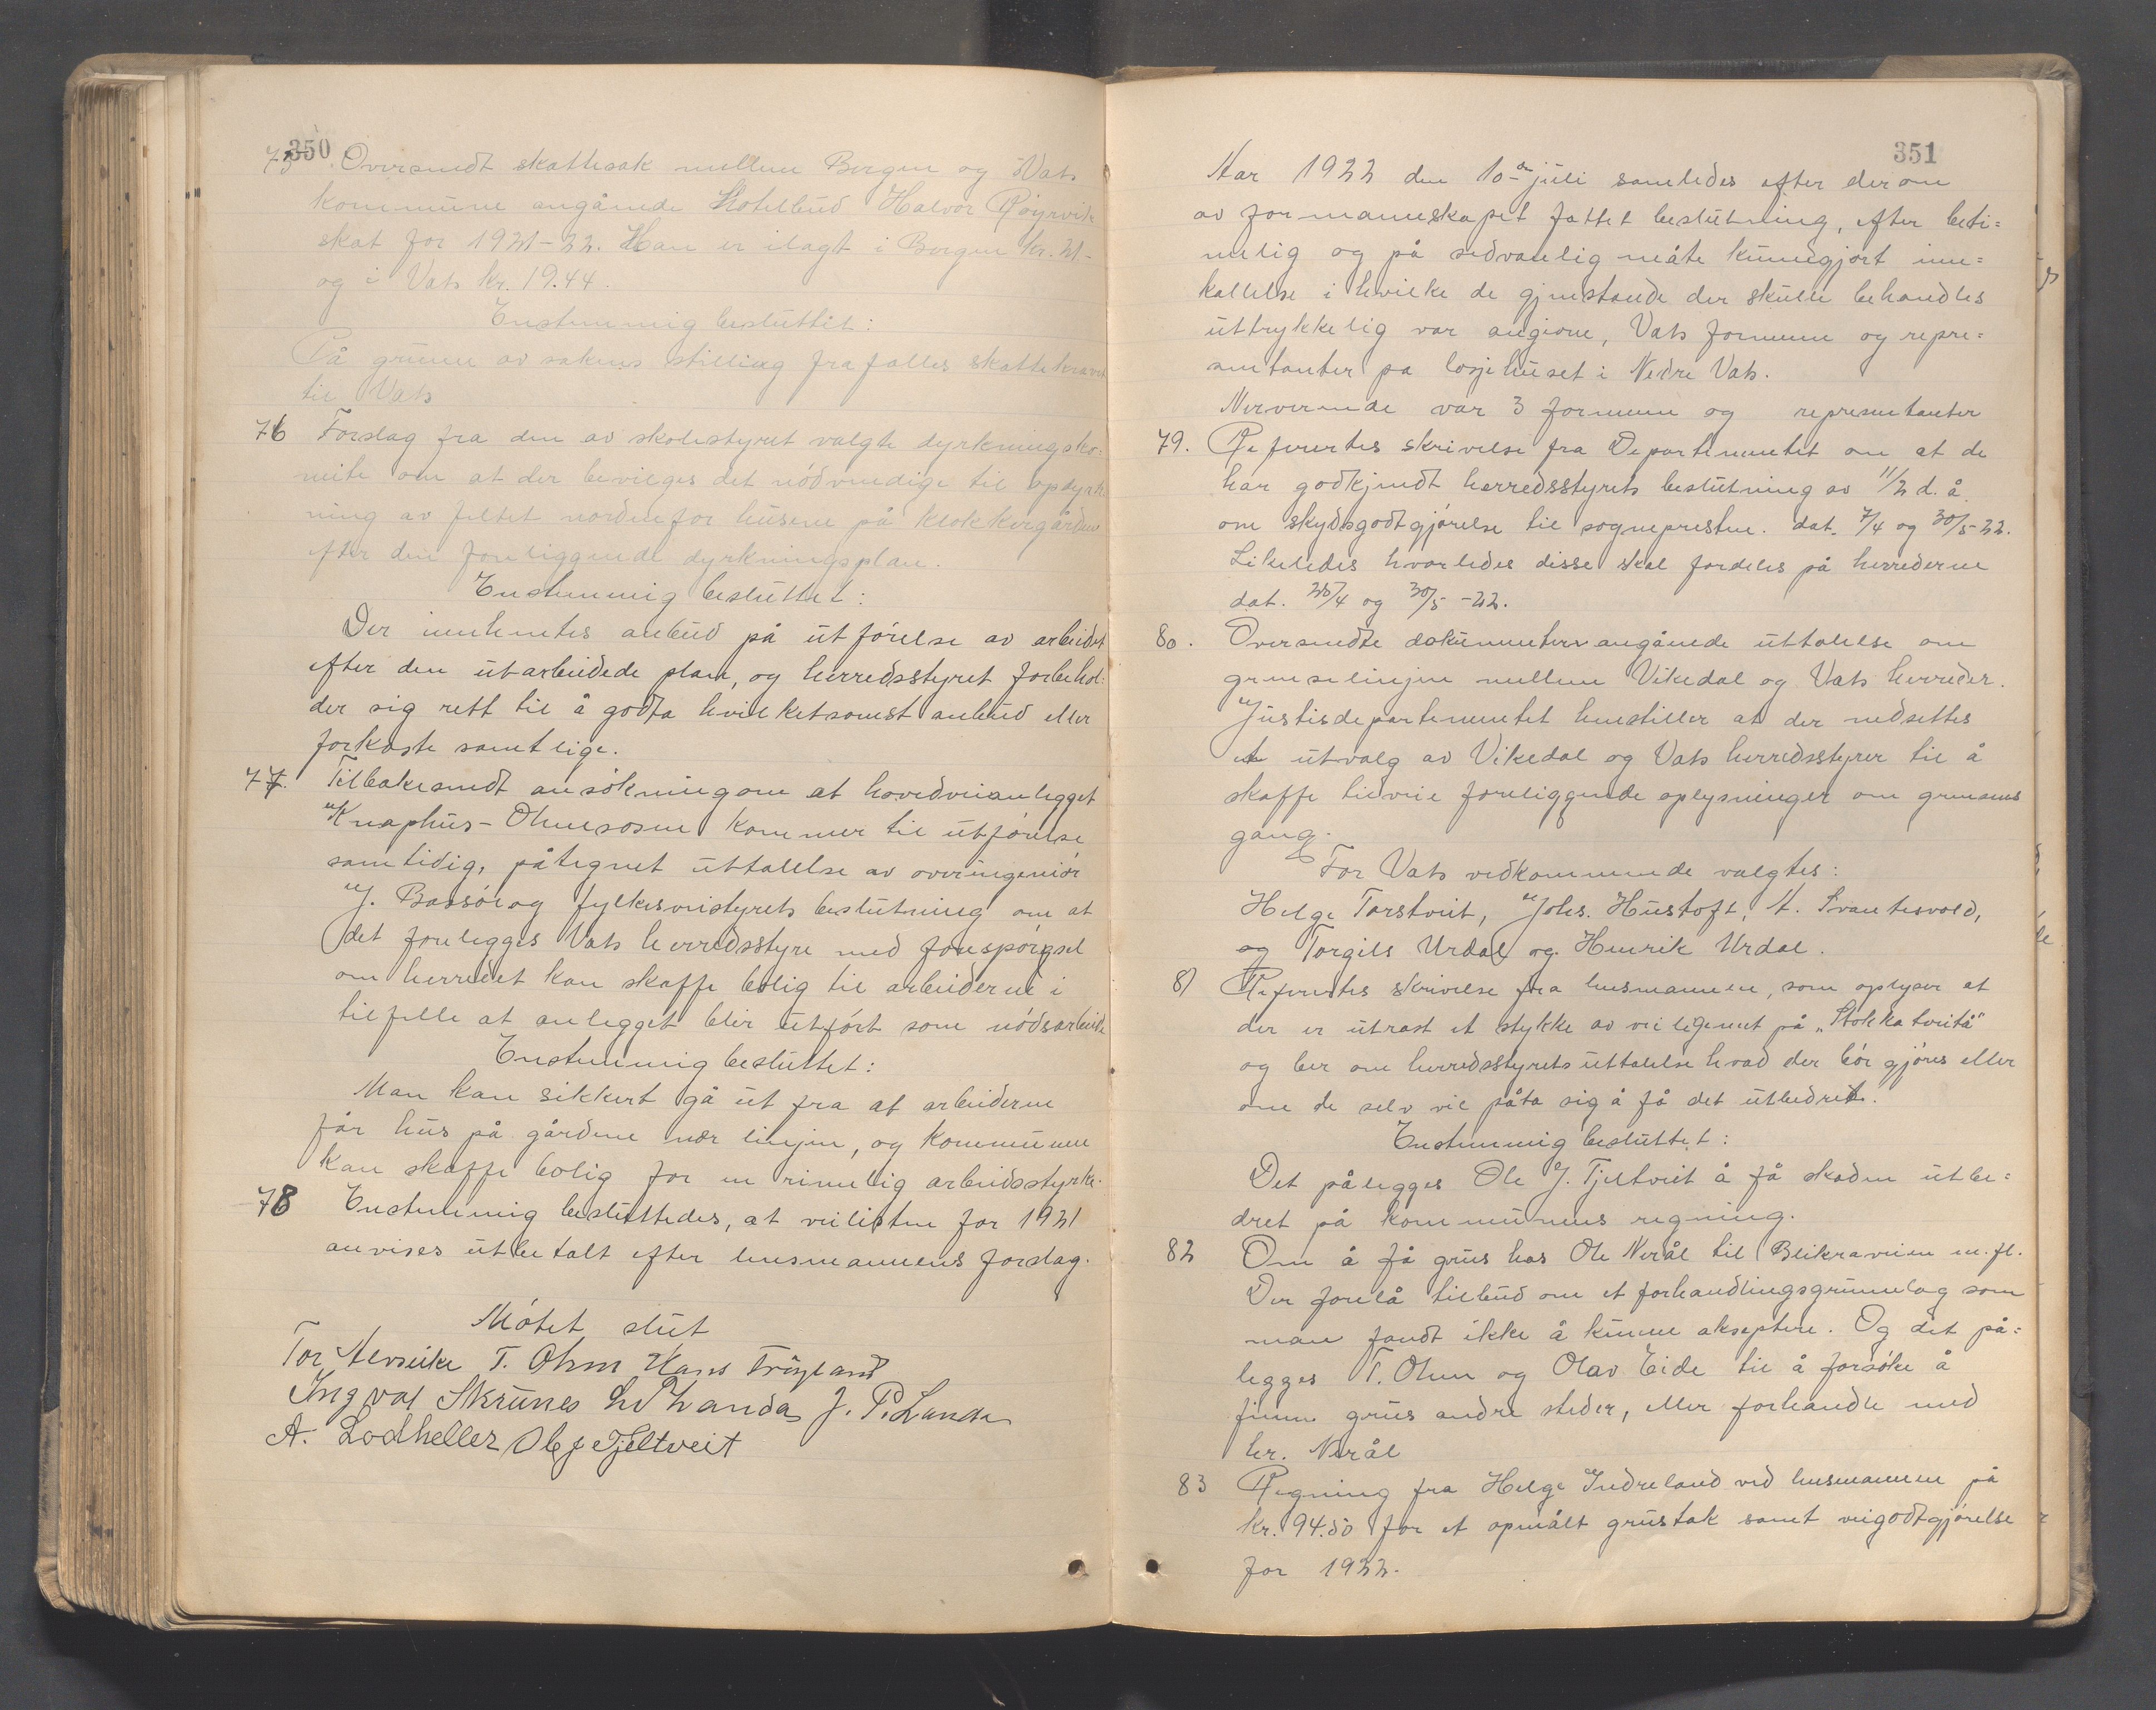 350
75. Oversendt skattesak mellem Bergen og Vats
kommune angående Hotelbud Halvor Røyrvik
skat for 1921-22. Han er ilagt i Bergen kr. 21-
og i Vats kr. 19.44.
Enstemmig besluttet:
På grunn av sakens stilling frafalles skattekravet
til Vats
76 Forslag fra den av skolestyret valgte dyrkningsko=
mite om at der bevilges det nödvendige til opdyrk
ning av feltet nordenfor husene på klokkergården
efter den foreliggende dyrkningsplan.
Enstemmig besluttet:
Der innhentes anbud på utförelse av arbeidet
efter den utarbeidede plan, og herredsstyret forbehol=
der sig rett til å godta hvilketsomst anbud eller
forkaste samtlige.
77. Tilbakesendt ansökning om at hovedveianlegget
Knaphus-Ølmesosen kommer til utförelse
samtidig, påtegnet uttalelse av overingeniör
J. Bassöe og fylkesveistyrets beslutning om at
det forelegges Vats herredsstyre med forespörgsel
om herredet kan skaffe bolig til arbeiderne i
tilfelle at anlegget blir utfört som nödsarbeide
Enstemmig besluttet:
Man kan sikkert gå ut fra at arbeiderne
får hus på gårdene nær linjen, og kommunen
kan skaffe bolig for en rimelig arbeidsstyrke.
78 Enstemmig besluttedes, at veilisten for 1921
anvises utbetalt efter lensmannens forslag.
Mötet slut
Tor Alvseike T. Ohm Hans Fröyland
Ingval Skrunes J. P. Lunde
A. Lodheller Ole J Tjeltveit
351
Aar 1922 den 10de juli samledes efter derom
av formannskapet fattet beslutning, efter beti=
melig og på sedvanlig måte kunngjort inn=
kallelse i hvilke de gjenstande der skulle behandles
uttrykkelig var angivne, Vats formenn og repre=
sentanter pa losjehuset i Nedre Vats.
Nerverende var 3 formenn og representanter
79. Refertes skrivelse fra Departementet om at de
har godkjendt herredsstyrets beslutning av 11/2 d. å.
om skydsgodtgjörelse til sognepresten. dat. 7/4 og 30/5-22.
Likeledes hvorledes disse skal fordeles på herrederne
dat. 4 og 30/5 -22.
80. Oversendte dokumenter angående uttalelse om
grenselinjen mellem Vikedal og Vats herreder.
Justisdepartementet henstiller at der nedsettes
et utvalg av Vikedal og Vats herredsstyrer til å
skaffe tilveie foreliggende oplysninger om grensens
gang.
For Vats vedkommende valgtes:
Helge Torstveit, Johs. Hustoft, A. Svantesvold,
og Torgils Urdal og Henrik Urdal.
81 Refertes skrivelse fra lensmannen, som oplyser at
der er utrast et stykke av veilegemet på „Stokkatveitå"
og ber om herredsstyrets uttalelse hvad der bör gjöres eller
om de selv vil påta sig å få det utbedret.
Enstemmig besluttet:
Det pålegges Ole J. Tjeltveit å få skaden utbe=
dret på kommunens regning.
82 Om å få grus hos Ole Nerål til Blikraveien m.fl.
Der forelå tilbud om et forhandlingsgrunnlag som
man fandt ikke å kunne akseptere. Og det på=
legges T. Ohm og Olav Eide til å forsöke å
finne grus andre steder, eller forhandle med
hr. Nerål
83 Regning fra Helge Indreland ved lensmannen på
kr. 94.50 for et opmålt grustak samt veigodtgjörelse
for 1922.